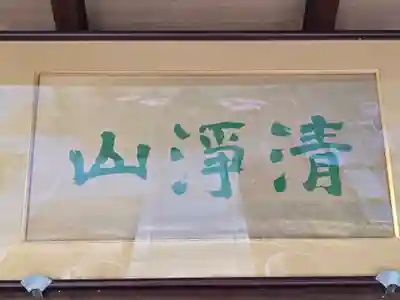 清淨山